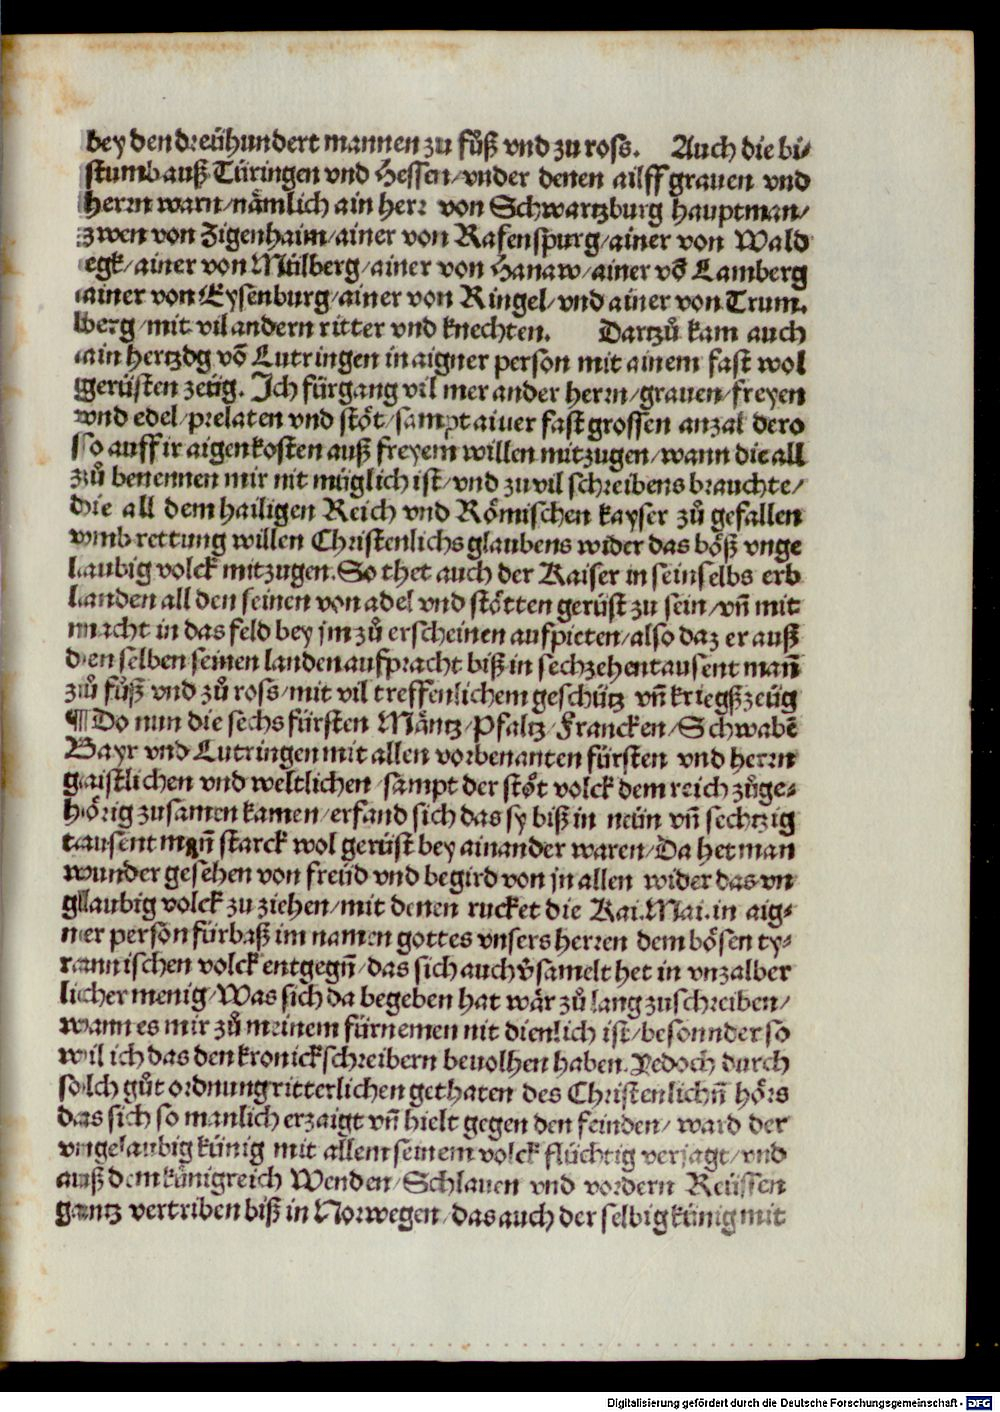 bey den dreühundert mannen zu fůß vnd zu ross. Auch die bi⸗
stumb auß Türingen vnd Hessen/vnder denen ailff grauen vnd
herrn warn/nämlich ain herr von Schwartzburg hauptman/
zwen von Zigenhaim/ainer von Rafenspurg/ainer von Wald
egk/ainer von Mülberg/ainer von Hanaw/ainer võ Lamberg
ainer von Eysenburg/ainer von Ringel/vnd ainer von Trum.
lberg/mit vil andern ritter vnd knechten. Dartzů kam auch
ain hertzog võ Lutringen in aigner person mit ainem fast wol
gerüsten zeüg. Ich fürgang vil mer ander herrn/grauen/freyen
vnd edel/prelaten vnd stöt/sampt ainer fast grossen anzal dero
so auff ir aigen kosten auß freyem willen mitzugen/wann die all
zů benennen mir nit müglich ist/vnd zuvil schreibens brauchte/
die all dem hailigen Reich vnd Römischen kayser zů gefallen
vmb rettung willen Christenlichs glaubens wider das böß vnge
laubig volck mitzugen. So thet auch der Kaiser in seinselbs erb
landen all den seinen von adel vnd stötten gerüst zu sein/vñ mit
macht in das feld bey jm zů erscheinen aufpieten/also daz er auß
den selben seinen landen aufpracht biß in sechzehentausent mañ
zů fůß vnd zů ross/mit vil treffenlichem geschütz vñ kriegßzeüg
¶ Do nun die sechs fürsten Mäntz/Pfaltz/Francken/Schwabẽ
Bayr vnd Lutringen mit allen vorbenanten fürsten vnd herrn
gaistlichen vnd weltlichen/sampt der stöt volck dem reich zůge⸗
hörig zusamen kamen/erfand sich das sy biß in neün vñ sechtzig
tausent mañ starck wol gerüst bey ainander waren/Da het man
wunder gesehen von freüd vnd begird von jn allen wider das vn
glaubig volck zu ziehen/mit denen rucket die Kai. Mai. in aig⸗
ner person fürbaß im namen gottes vnsers herren dem bösen ty⸗
rannischen volck entgegñ/das sich auch v̈samelt het in vnzalber
licher menig/Was sich da begeben hat wär zů lang zuschreiben/
wann es mir zů meinem fürnemen nit dienlich ist/besonnder so
wil ich das den kronickschreibern beuolhen haben. Yedoch durch
solch gůt ordnung ritterlichen gethaten des Christenlichñ hörs
das sich so manlich erzaigt vñ hielt gegen den feinden/ ward der
vngelaubig künig mit allem seinem volck flüchtig verjagt/vnd
auß dem künigreich Wenden/Schlauen vnd vordern Reüssen
gantz vertriben biß in Norwegen/das auch der selbig künig mit
Digitalisierung gefördert durch die Deutsche Forschungsgemeinschaft - DFG